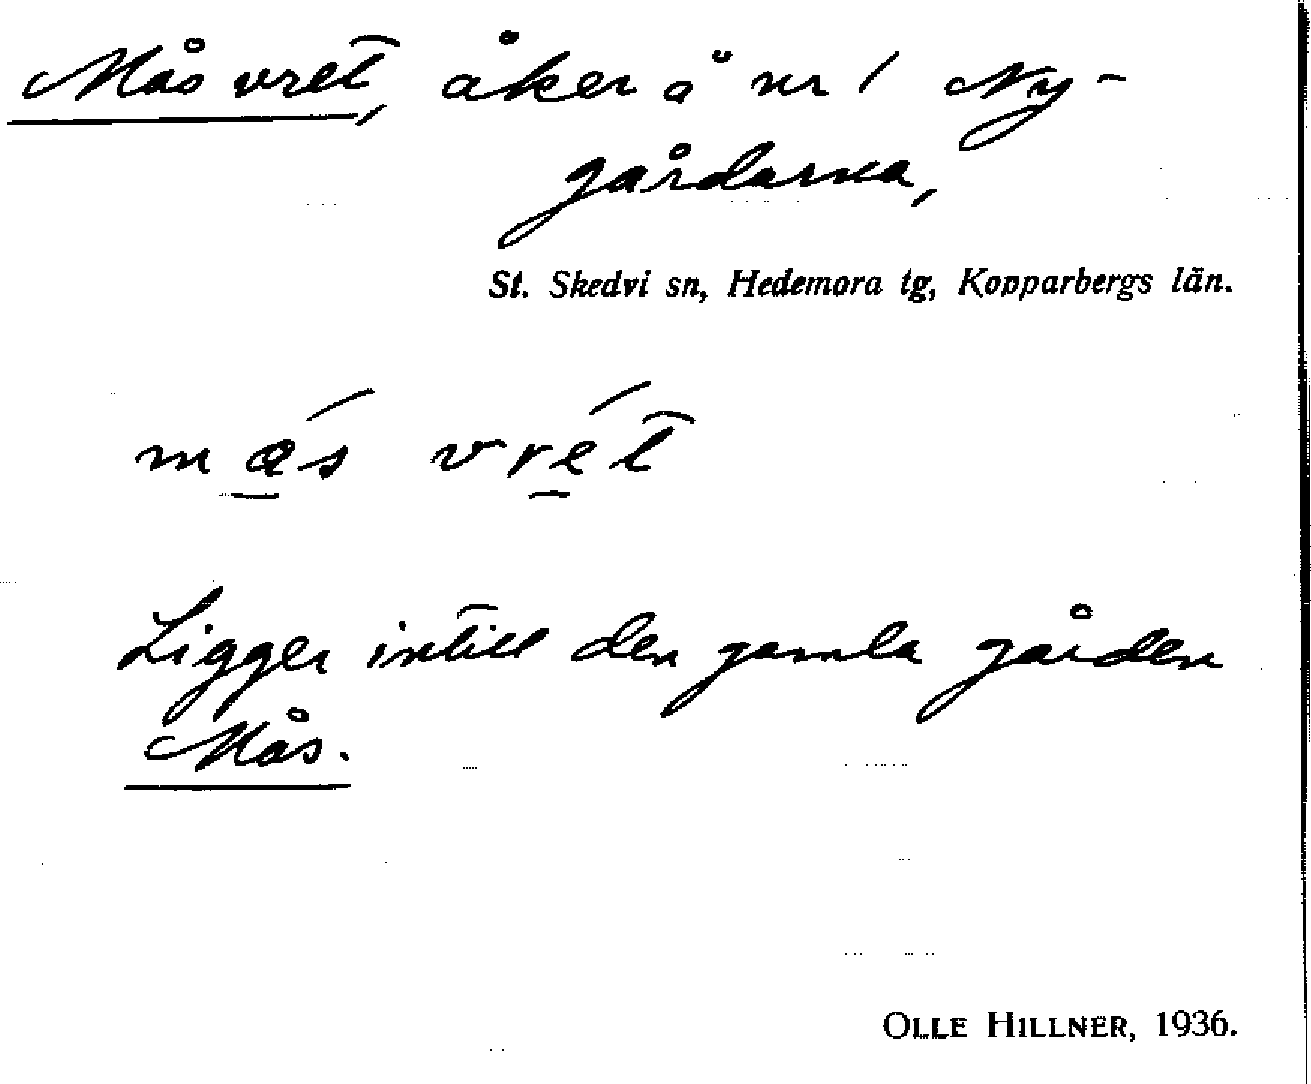 Mås vret, åker å nr 1 Ny-
gårdarna,
St. Skedvi sn, Hedemora tg, Kopparbergs län.
Ligger intill den gamla gården
Mås.
OLLE HILLNER, 1936.